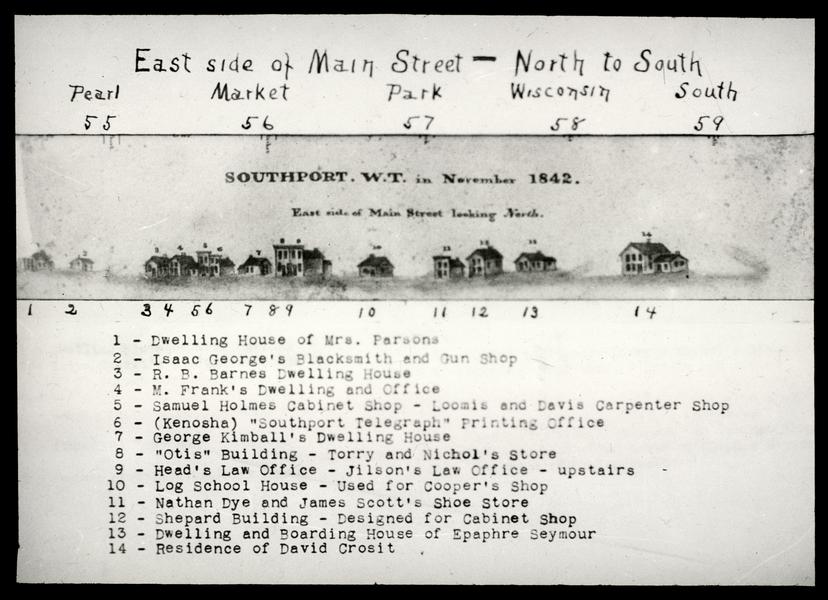 East side of Main Street - North to South
Pearl Market Park Wisconsin South
55 56 57 58 59
SOUTHPORT. W.T. in November 1842.
East side of Main Street looking North.
1 2 3 4 5 6 7 8 9 10 11 12 13 14
1 - Dwelling House of Mrs. Parsons
2 - Isaac George's Blacksmith and Gun Shop
3 - R. B. Barnes Dwelling House
4 - M. Frank's Dwelling and Office
5 - Samuel Holmes Cabinet Shop - Loomis and Davis Carpenter Shop
6 - (Kenosha) "Southport Telegraph" Printing Office
7 - George Kimball's Dwelling House
8 - "Otis" Building - Torry and Nichol's Store
9 - Head's Law Office - Jilson's Law Office - upstairs
10 - Log School House - Used for Cooper's Shop
11 - Nathan Dye and James Scott's Shoe Store
12 - Shepard Building - Designed for Cabinet Shop
13 - Dwelling and Boarding House of Epaphre Seymour
14 - Residence of David Crosit